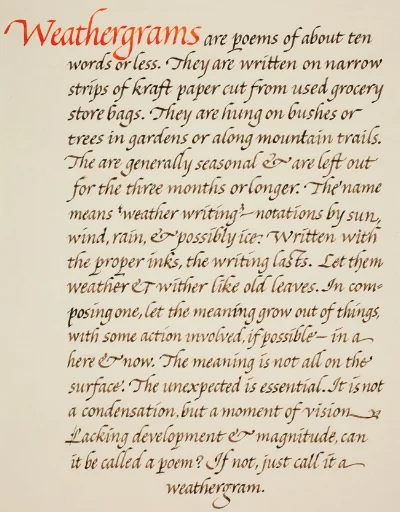 Weathergrams are poems of about ten
words or less. They are written on narrow
strips of kraft paper cut from used grocery
store bags. They are hung on bushes or
trees in gardens or along mountain trails.
The are generally seasonal & are left out
for the three months or longer. The name
means 'weather writing' – notations by sun,
wind, rain, & possibly ice. Written with
the proper inks, the writing lasts. Let them
weather & wither like old leaves. In com-
posing one, let the meaning grow out of things,
with some action involved, if possible – in a
here & now. The meaning is not all on the
surface. The unexpected is essential. It is not
a condensation, but a moment of vision
Lacking development & magnitude, can
it be called a poem? If not, just call it a
weathergram.